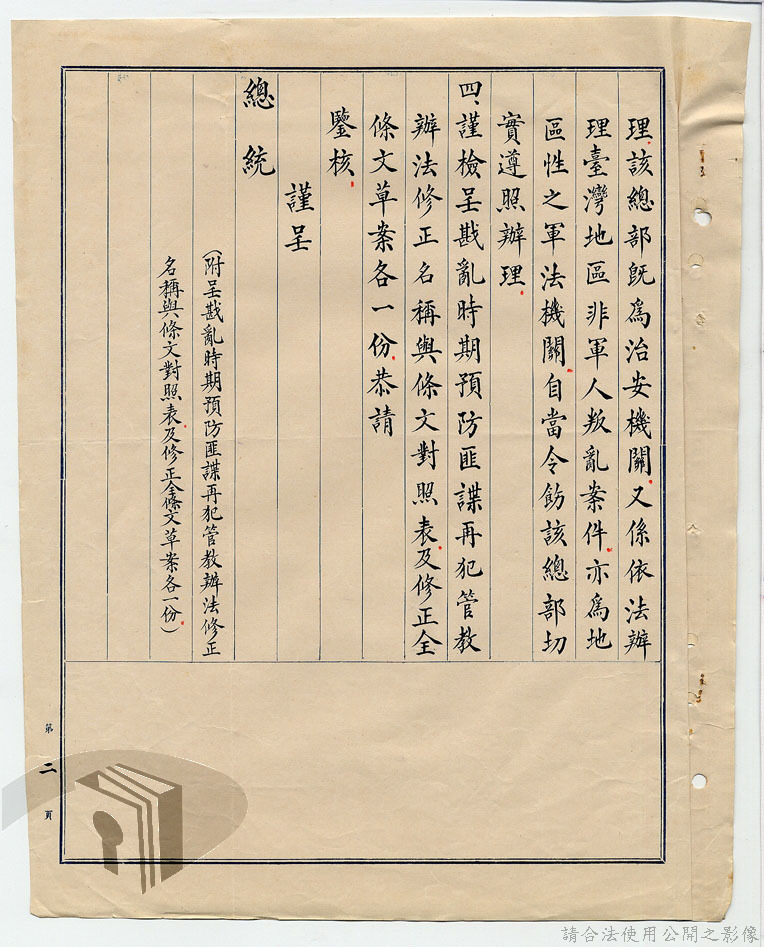 理該總部既為治安機關又係依法辦
理臺灣地區非軍人叛亂案件亦為地
區性之軍法機關自當令飭該總部切
實遵照辦理
四、謹檢呈戡亂時期預防匪諜再犯管教
辦法修正名稱與條文對照表及修正全
條文草案各一份恭請
鑒核
謹呈
總統
(附呈戡亂時期預防匪諜再犯管教辦法修正
名稱與條文對照表及修正全條文草案各一份)
第二頁
請合法使用公開之影像